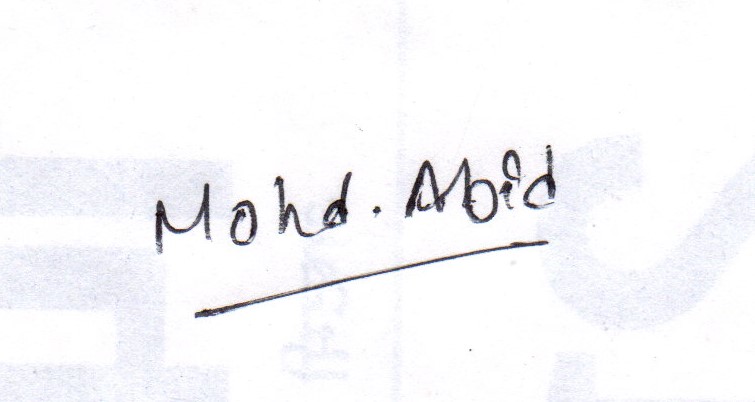 Mohd. Abid